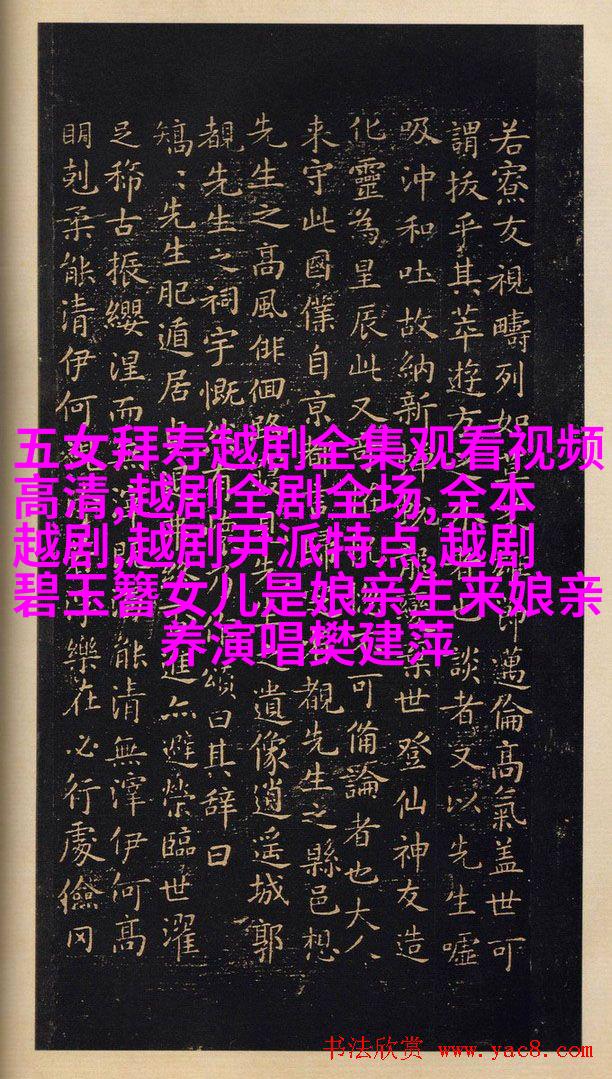 五女拜寿越剧全集观看视频
高清,越剧全剧全场,全本
越剧,越剧尹派特点,越剧
碧玉簪女儿是娘亲生来娘亲
养演唱樊建萍
若寮友視疇列如邁倫高氣盖世可
謂拔乎其萃遊方者也談者又以先生噓
吸沖和吐故納新世登仙神友造
化靈為星辰此又可備論者也大人
来守此國僕自京都覩先生之縣邑想
先生之高風俳佪路先之遺像逍遥城郭
覩先生之祠宇慨頌曰其辭曰
矯:先生肥遁居進亦避榮臨世濯
足稀古振纓涅而能清無滓伊何高
明剋柔能清伊何樂在必行處儉冈
书法欣赏 www.yac8.com